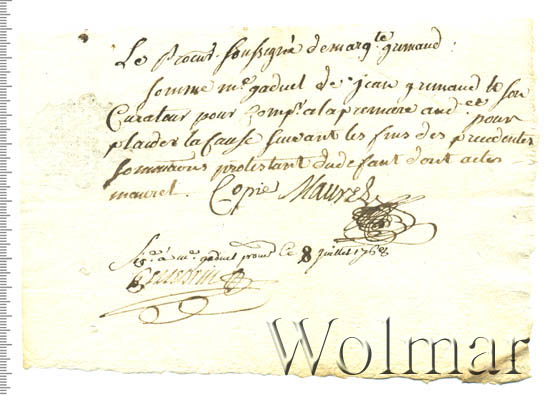 Le Procur. Soussigné de marg.te grimaud :
Somme m.e gaduel de jean grimaud & son
Curateur pour comp. a la premiere aud.ce pour
plaider la Cause suivant les fins des precedentes
sommations protestant du defaut dont acte
maurel. Copie Maurel
Sig.é à m.e gaduel prour Le 8 Juillet 1768
Wolmar